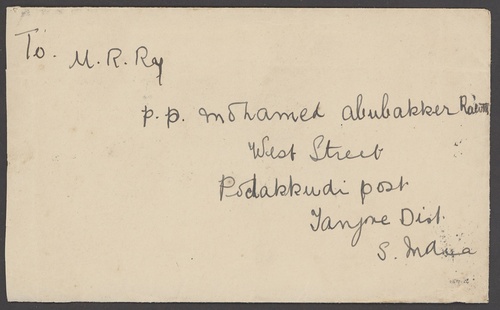 To. M. R. Ry
P. P. Mohamed Abubakker
West Street
Podakkudi post
Tanjore Dist.
S. India